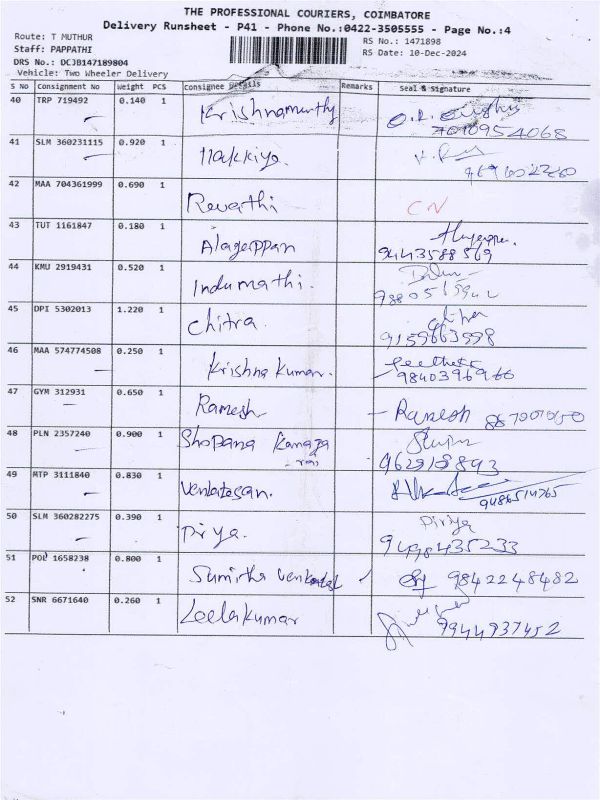 THE PROFESSIONAL COURIERS, COIMBATORE
Delivery Runsheet - P41 - Phone No.:0422-3505555 - Page No.:4
Route: T MUTHUR
RS No.: 1471898
Staff: PAPPATHI
RS Date: 10-Dec-2024
DRS No.: DCJB147189804
Vehicle: Two Wheeler Delivery
S No Consignment No Weight PCS Consignee Details Remarks Seal & Signature
40 TRP 719492 0.140 1 Krishnamurthy
41 SLM 360231115 0.920 1
42 MAA 704361999 0.690 1 Revathi CN
43 TUT 1161847 0.180 1 Alagerppan
9443588569
44 KMU 2919431 0.520 1 Indumathi.
45 DPI 5302013 1.220 1 Chitra.
9159663598
46 MAA 574774508 0.250 1 Krishna kumar.
9840396966
47 GYM 312931 0.650 1 Ramesh Ramesh
48 PLN 2357240 0.900 1 Shopana Kanaga
raj
49 MTP 3111840 0.830 1 Venkatesan.
50 SLM 360282275 0.390 1 Pirya. Piriya
9498435233
51 POL 1658238 0.800 1 Sumitha 9842248482
52 SNR 6671640 0.260 1 Leelakumar
9944937452